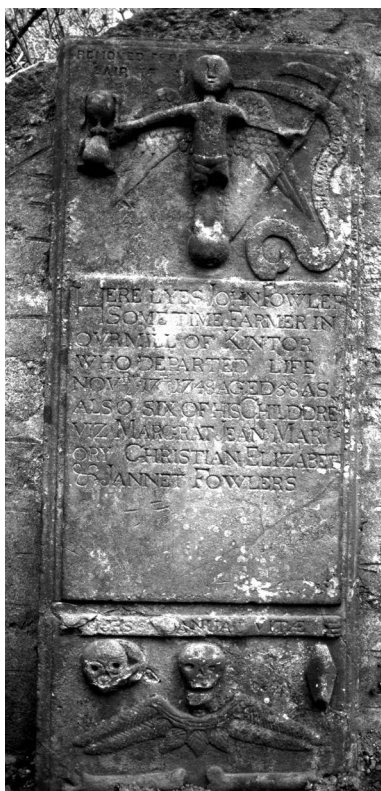 REMOVED FROM
HERE LYES JOHN FOWLER
SOMETIME FARMER IN
OVRMILL OF KINTOR
WHO DEPARTED LIFE
NOVR 17 1748 AGED 68 AS
ALSO SIX OF HIS CHILDDRE
VIZ MARGRAT JEAN MARJ
ORY CHRISTIAN ELIZABT
& JANNET FOWLERS
MORS JANUA VITÆ